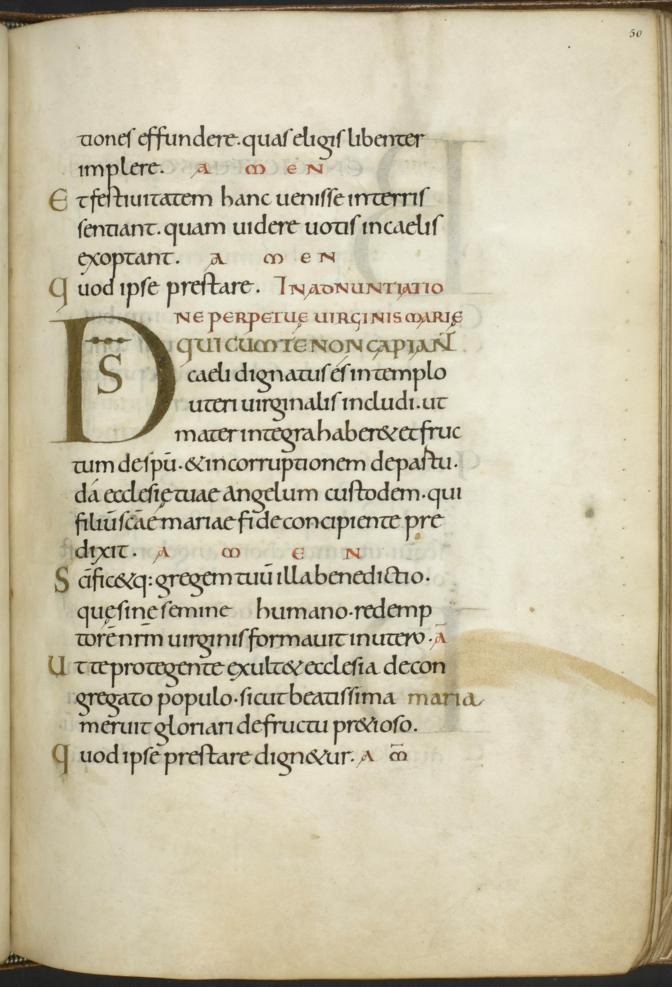 50
tiones effundere. quas eligis libenter
implere. A M E N
Et festiuitatem hanc uenisse in terris
sentiant. quam uidere uotis in caelis
exoptant. A M E N
Quod ipse prestare. IN ADNUNTIATIO
NE PERPETUE UIRGINIS MARIE
D̅S̅ QUI CUM TE NON CAPIAN̅
caeli dignatus es in templo
uteri uirginalis includi. ut
mater integra haber& et fruc
tum de sp̅u. & incorruptionem de partu.
da ecclesię tuae angelum custodem. qui
filiu̅ sc̅ae mariae fide concipiente pre
dixit. A M E N
Sc̅ific&q: gregem tuu̅ illa benedictio.
quę sine semine humano. redemp
tore̅ nr̅m uirginis formauit in utero. A̅
Ut te protegente exult& ecclesia de con
gregato populo. sicut beatissima maria
meruit gloriari de fructu pr&ioso.
Quod ipse prestare dign&ur. A M̅